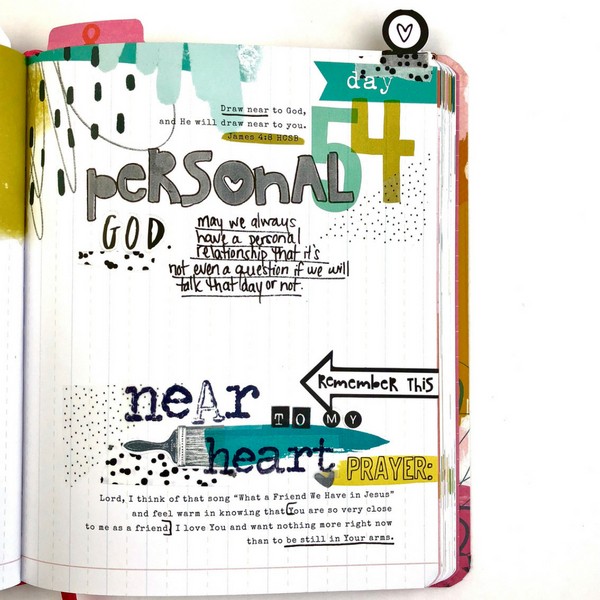 day
54
Draw near to God,
and He will draw near to you.
James 4:8 HCSB
personal
GOD.
may we always
have a personal
relationship that it's
not even a question if we will
talk that day or not.
Remember This
near
TO MY
heart
PRAYER:
Lord, I think of that song "What a Friend We Have in Jesus"
and feel warm in knowing that You are so very close
to me as a friend. I love You and want nothing more right now
than to be still in Your arms.